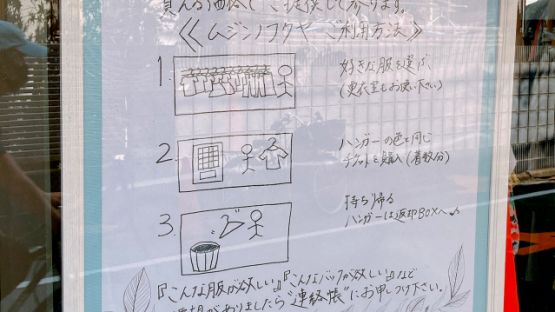 買える価格でご提供しております。
《ムジンノフクヤ ご利用方法》
1.
好きな服を選ぶ
(更衣室もお使い下さい)
2.
ハンガーの色と同じ
チケットを購入(着数分)
3.
持ち帰る
ハンガーは返却BOXへ♪
『こんな服が欲しい』『こんなバッグが欲しい』など
がありましたら"連絡帳"にお申しつけ下さい。